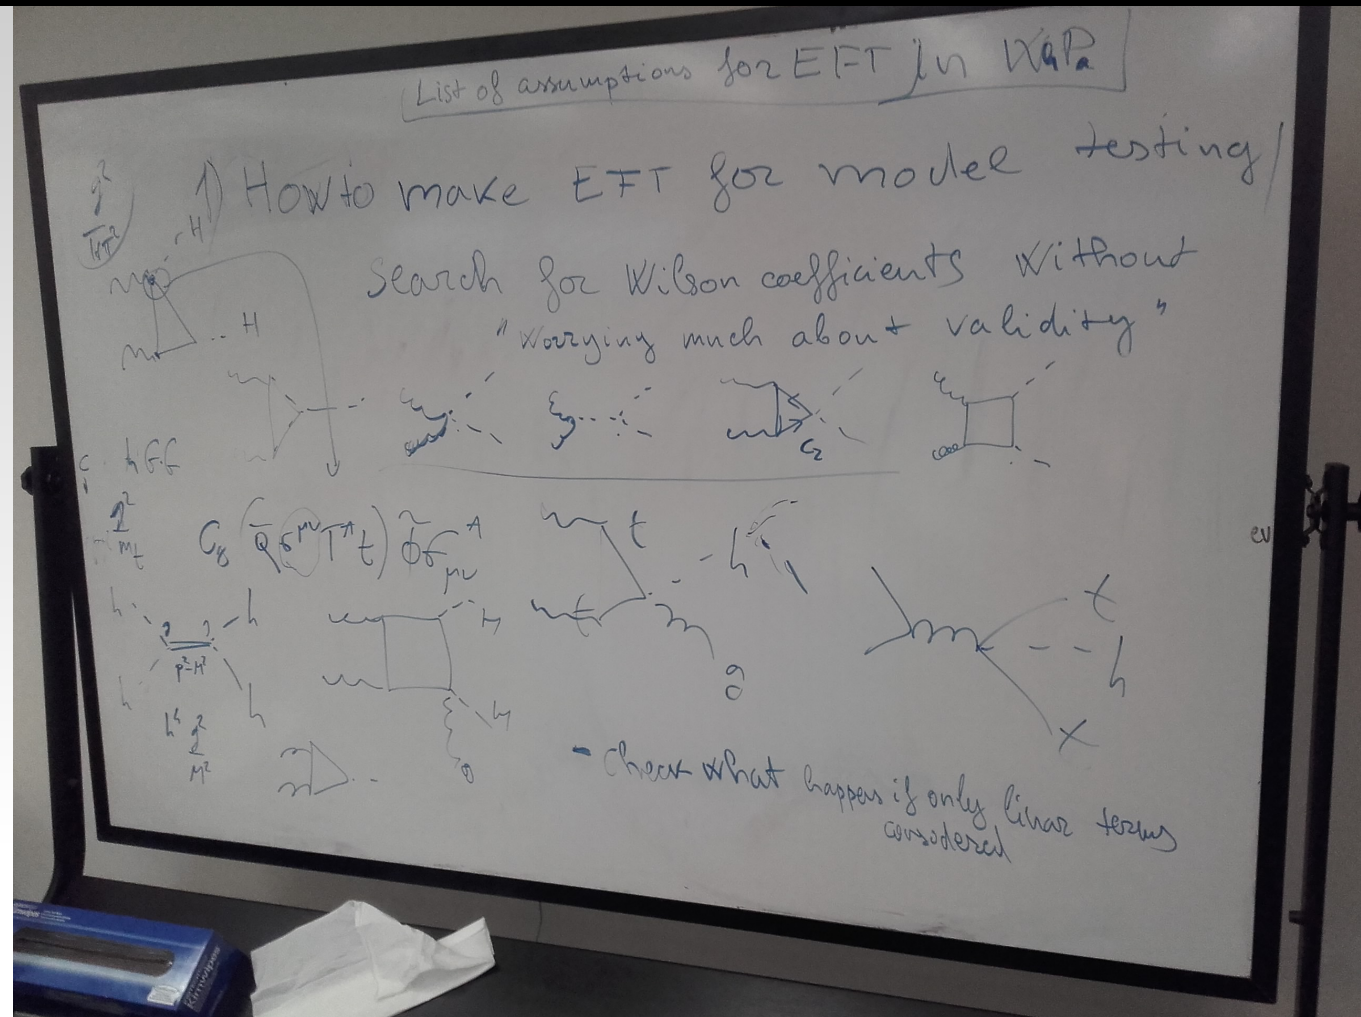 List of assumptions for EFT in
1) How to make EFT for model testing/
Search for Wilson coefficients without
"Worrying much about validity"
H
H
C₂
hGG
g²
mₜ
C₈ (Q̄ σ^μν T^A t) φ̃ G^A_μν
t
h
t
g
t
h
t
h
h
p²-M²
h
h
h⁴ g²
M²
H
H
- Check what happens if only linar terms
consodered
Kimwipes